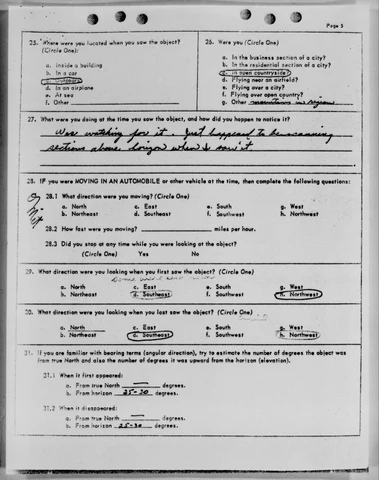 Page 5
25. Where were you located when you saw the object?
(Circle One):
a. Inside a building
b. In a car
c. Outdoors
d. In an airplane
e. At sea
f. Other
26. Were you (Circle One)
a. In the business section of a city?
b. In the residential section of a city?
c. In open countryside?
d. Flying near an airfield?
e. Flying over a city?
f. Flying over open country?
g. Other mountains in region
27. What were you doing at the time you saw the object, and how did you happen to notice it?
Was watching for it. Just happened to be scanning
sections above horizon when I saw it
28. IF you were MOVING IN AN AUTOMOBILE or other vehicle at the time, then complete the following questions:
28.1 What direction were you moving? (Circle One)
a. North c. East e. South g. West
b. Northeast d. Southeast f. Southwest h. Northwest
28.2 How fast were you moving? miles per hour.
28.3 Did you stop at any time while you were looking at the object?
(Circle One) Yes No
29. What direction were you looking when you first saw the object? (Circle One)
a. North c. East e. South g. West
b. Northeast d. Southeast f. Southwest h. Northwest
30. What direction were you looking when you last saw the object? (Circle One)
a. North c. East e. South g. West
b. Northeast d. Southeast f. Southwest h. Northwest
31. If you are familiar with bearing terms (angular direction), try to estimate the number of degrees the object was
from true North and also the number of degrees it was upward from the horizon (elevation).
31.1 When it first appeared:
a. From true North — degrees.
b. From horizon 25-30 degrees.
31.2 When it disappeared:
a. From true North — degrees.
b. From horizon 25-30 degrees.